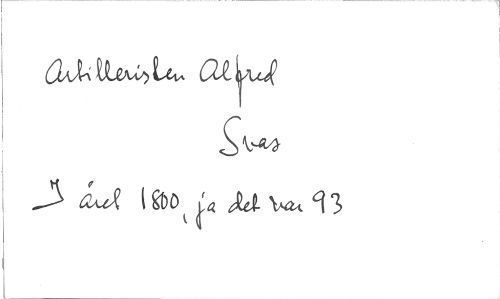 Artilleristen Alfred
Svas
I året 1800, ja det var 93